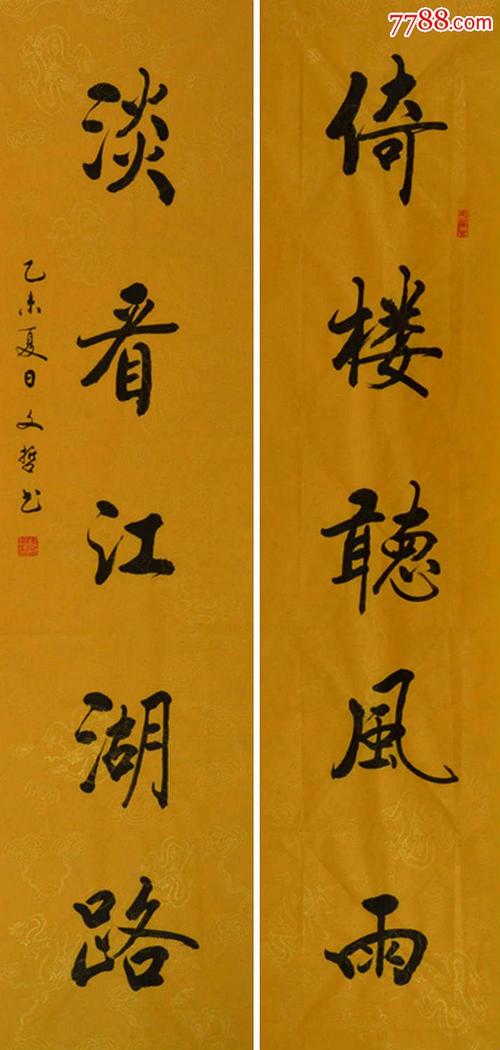 7788.com
倚楼聽風雨
淡看江湖路
乙未夏日文哲书